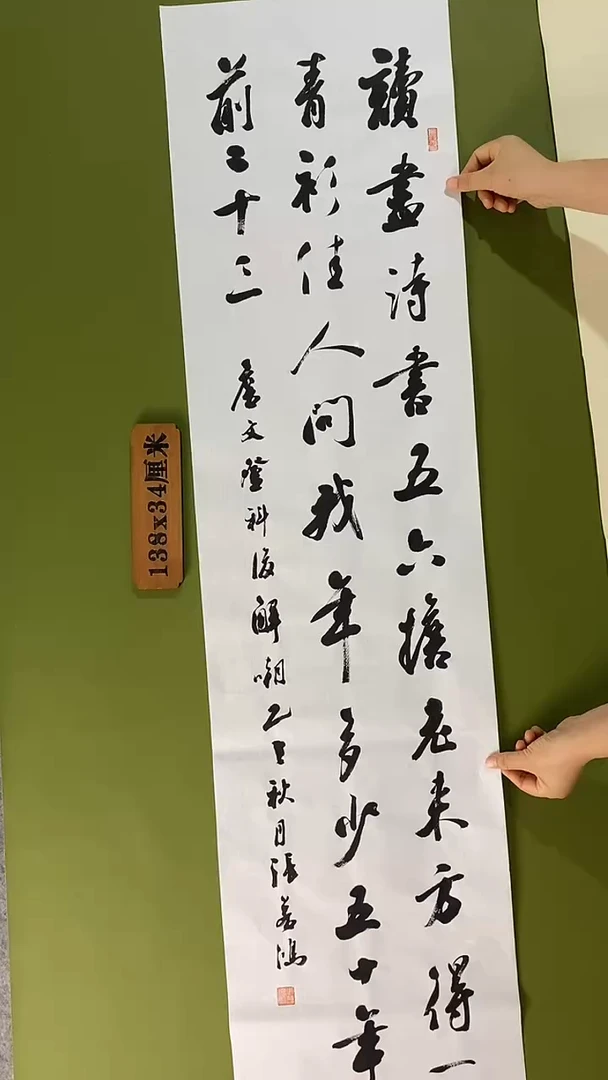 讀盡詩書五六擔老来方得一
青衫佳人問我年多少五十年
前二十三
詹文登科後解嘲乙巳秋月張若鴻
138x34厘米